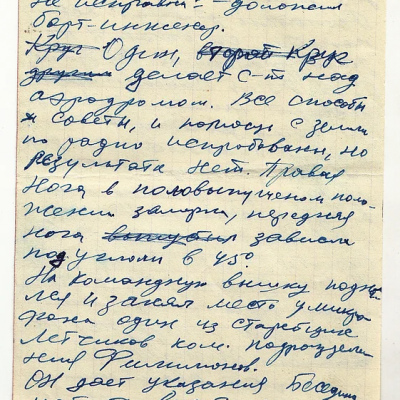 не исправны? - доложил
борт-инженер.
Круг Один, второй Круг
другим делает с-т над
аэродромом. Все способы
и советы, и помощь с земли
по радио испробованы, но
результата нет. Правая
нога в половыпущеном поло-
жении замерла, передняя
нога выпустил зависла
под углом в 45°
На командную вышку подня-
лся и занял место у микро
фона один из старейших
летчиков ком. подразделе
ния Филимонов.
Он дает указания